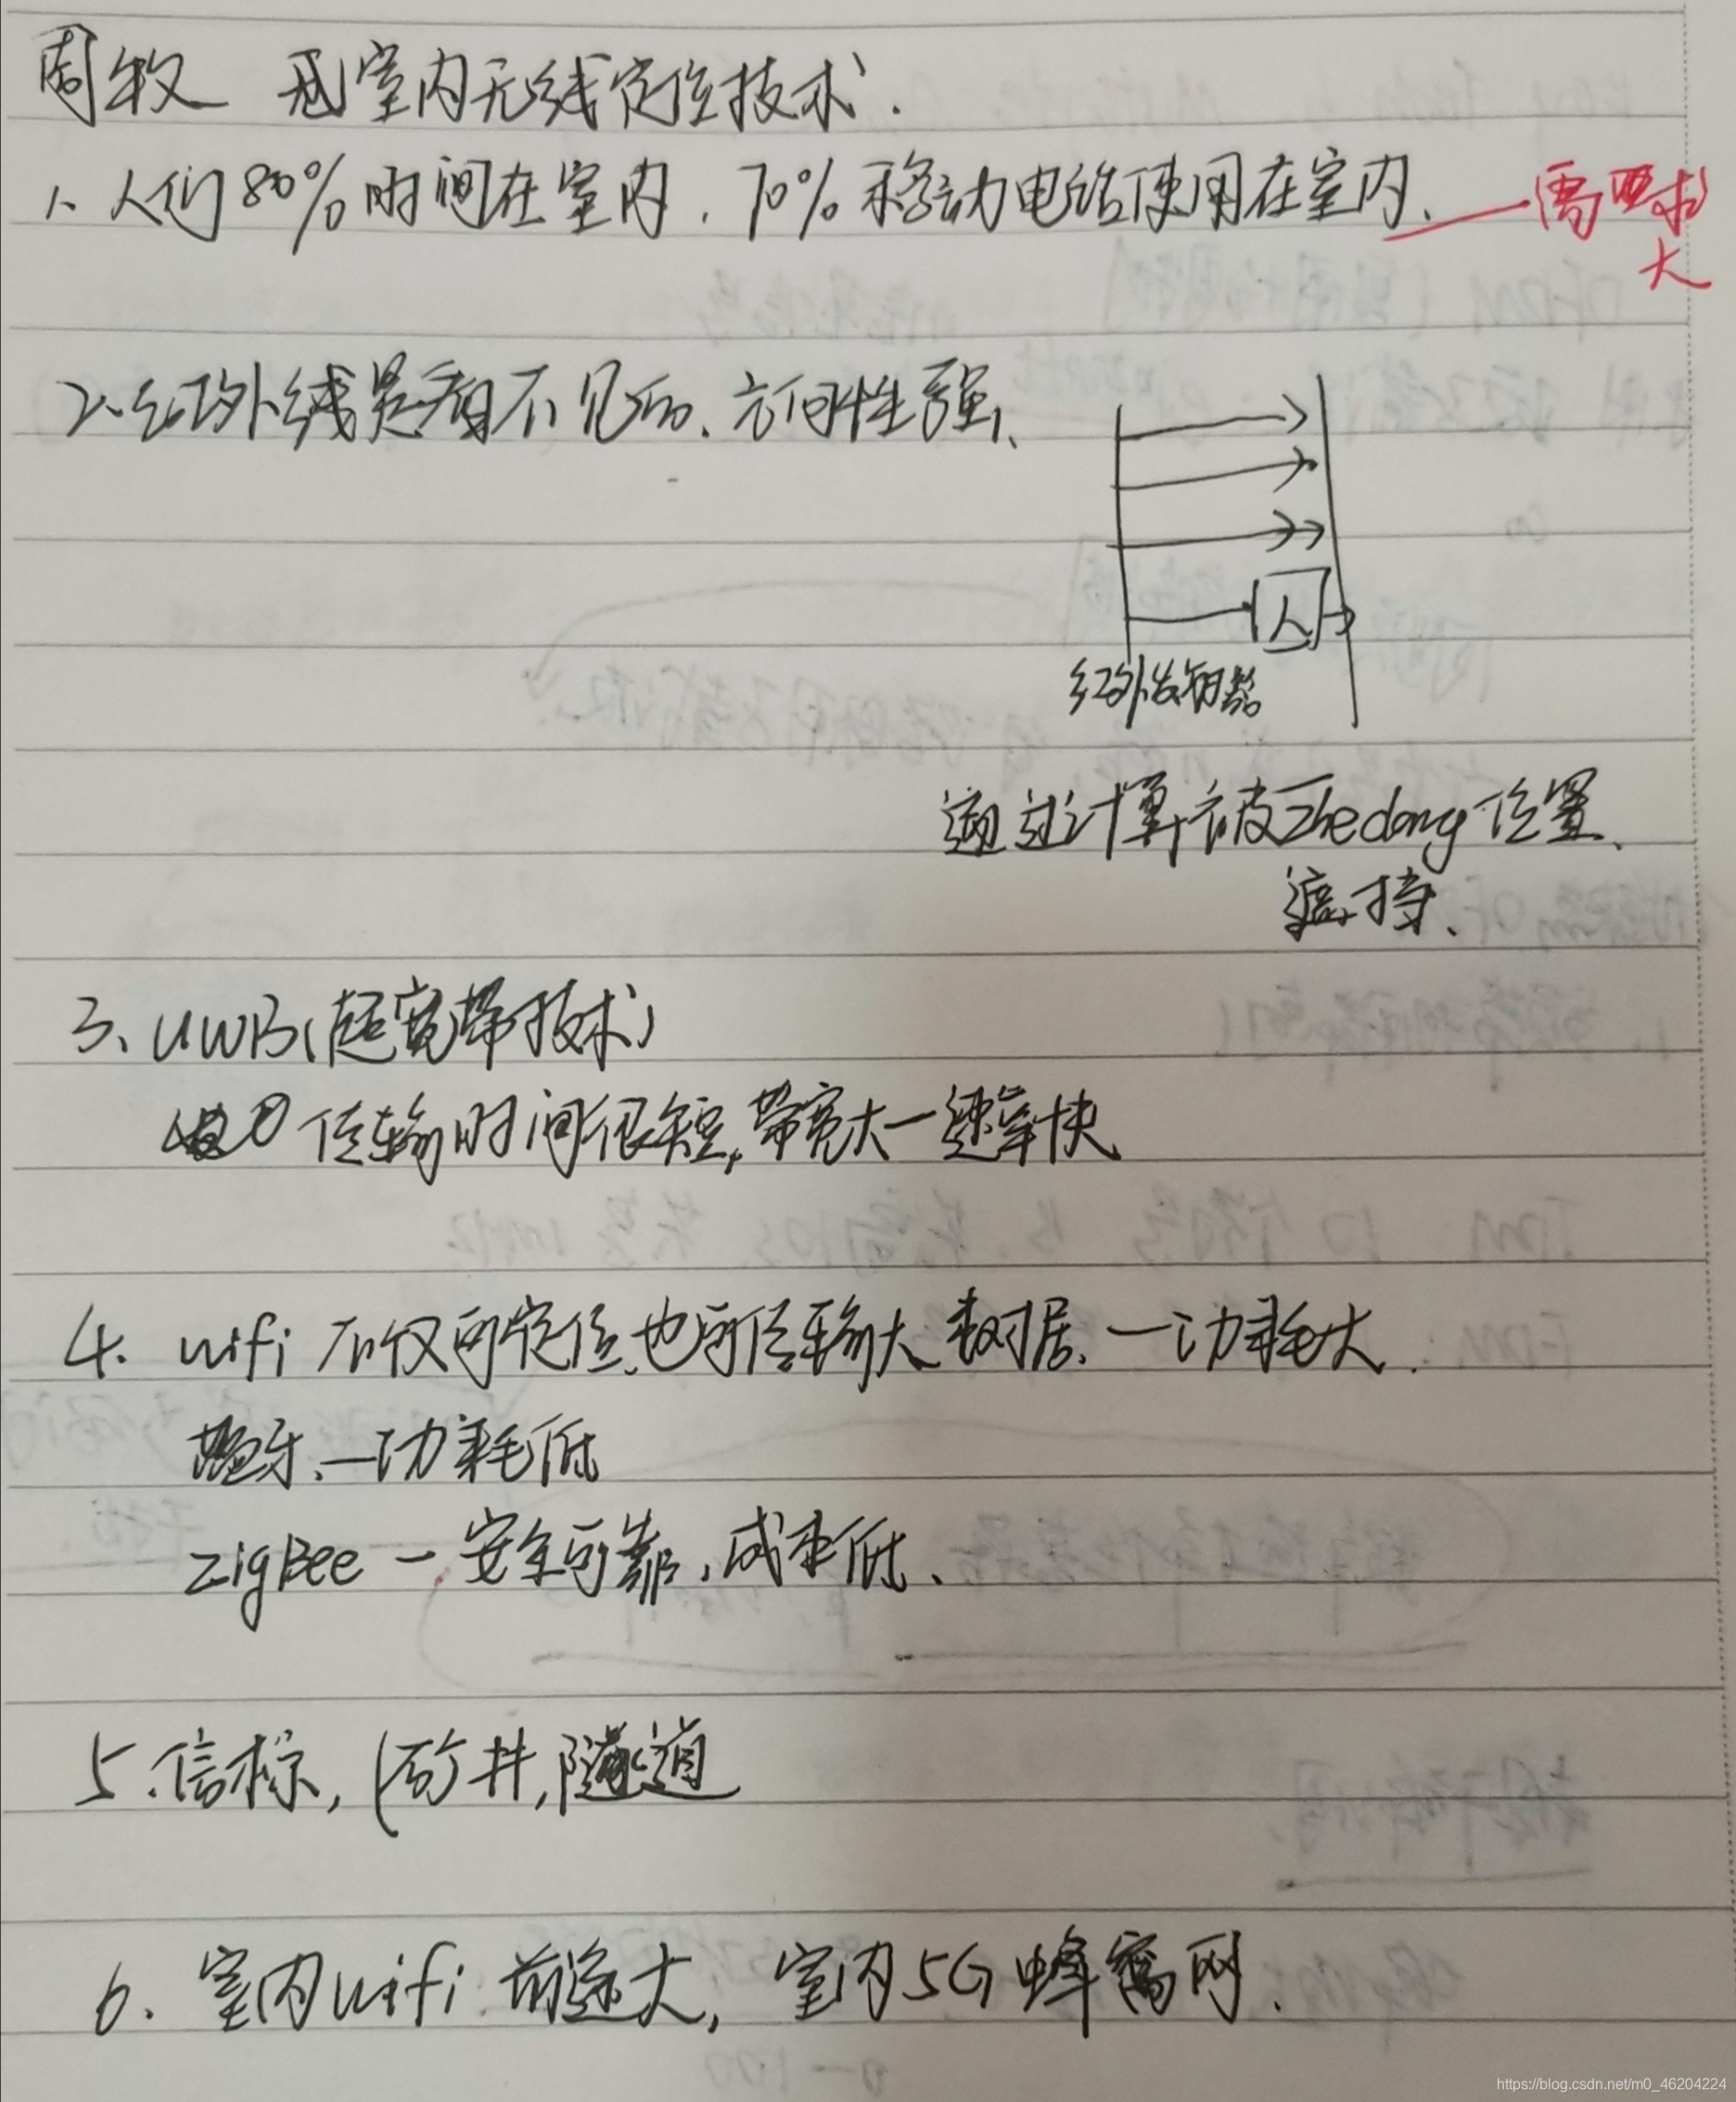 周牧 室内无线定位技术.
1、人们80%时间在室内,70%移动电话使用在室内、—需要求
大
2、红外线是看不见的、方向性强、
人
红外发射器
通过计算被zhedang位置、
遮挡、
3、UWB(超宽带技术)
传输时间很短,带宽大—速率快
4. wifi 不仅可定位、也可传输大数据、—功耗大.
蓝牙、—功耗低
ZigBee —安全可靠,成本低、
5.信标,(矿井,隧道
6. 室内wifi 前途大, 室内5G蜂窝网.
https://blog.csdn.net/m0_46204224